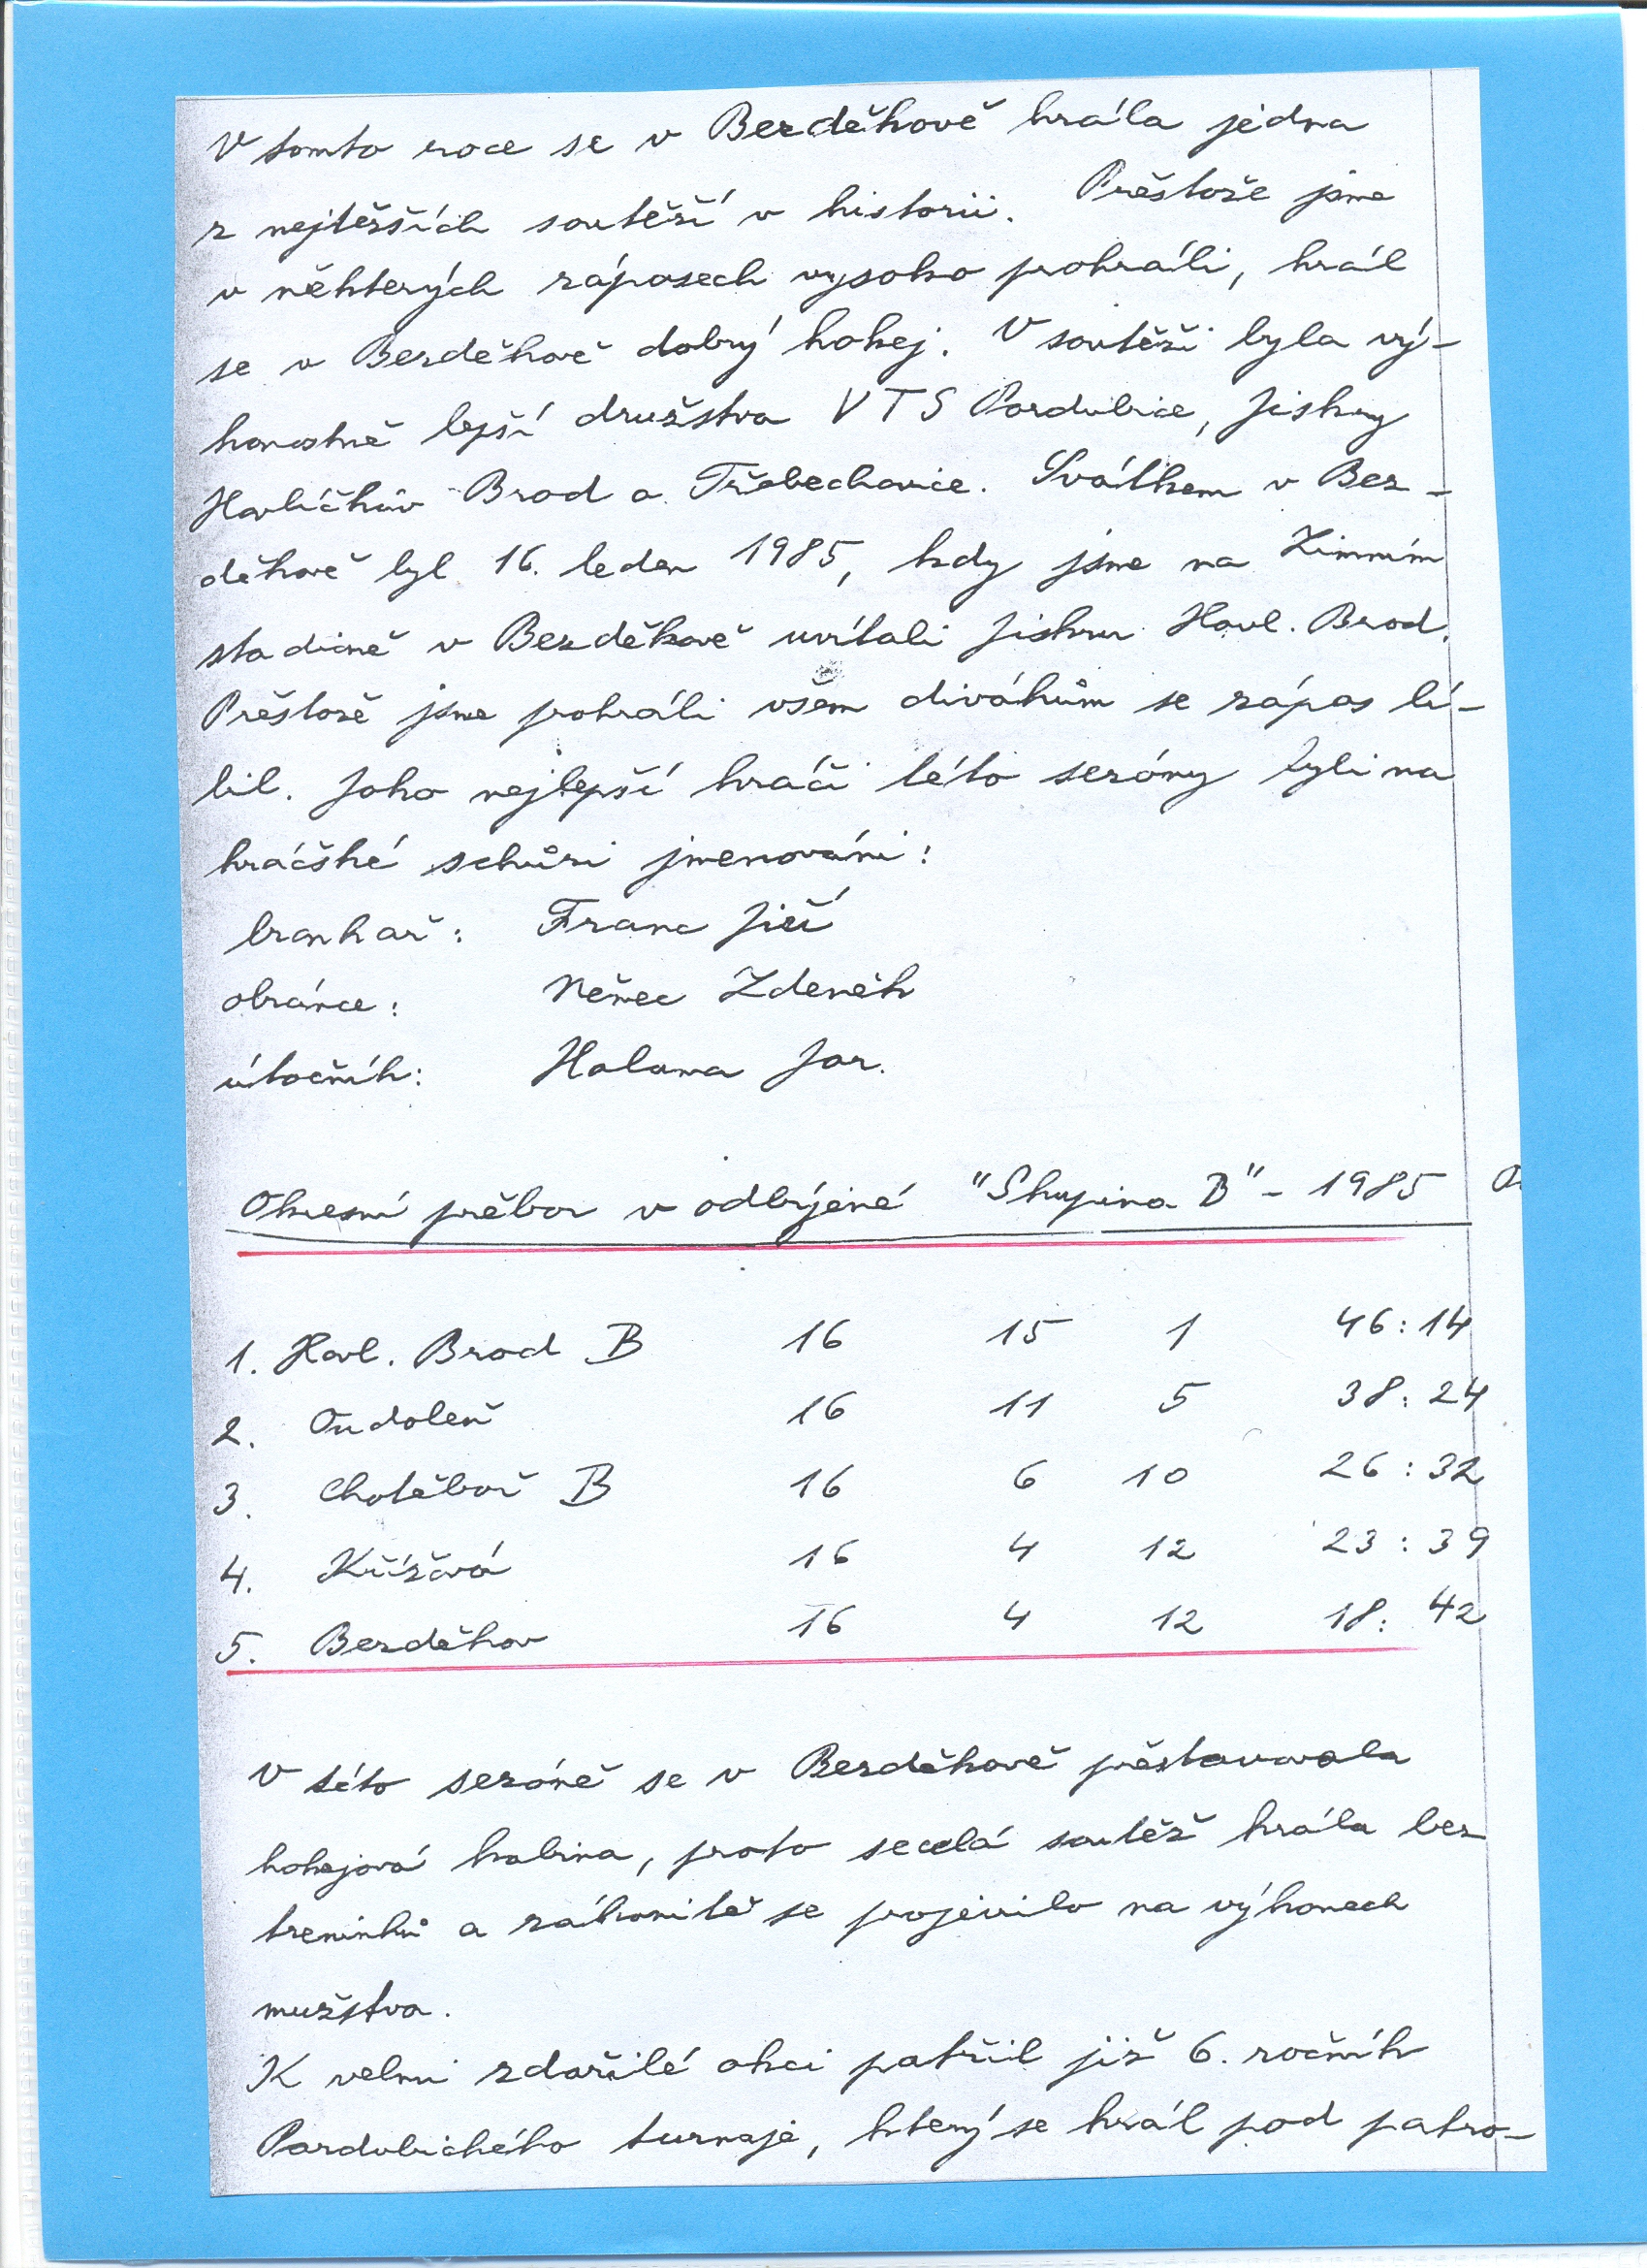 V tomto roce se v Bezděkově hrála jedna
z nejtěšších soutěží v historii. Přestože jsme
v některých zápasech vysoko prohráli, hrál
se v Bezděkově dobrý hokej. V soutěži byla vý-
konostně lepší družstva VTS Pardubice, Jiskry
Havlíčkův Brod a Třebechovice. Svátkem v Bez-
děkově byl 16. leden 1985, kdy jsme na Zimním
stadioně v Bezděkově uvítali Jiskru Havl. Brod.
Přestože jsme prohráli všem divákům se zápas lí-
bil. Jako nejlepší hráči této sezóny byli na
hráčské schůzi jmenováni:
brankář: Franc Jiří
obránce: Němec Zdeněk
útočník: Halama Jar.
Okresní přebor v odbíjené "Skupina B" - 1985
1. Havl. Brod B 16 15 1 46:14
2. Oudoleň 16 11 5 38:24
3. Chotěboř B 16 6 10 26:32
4. Křížová 16 4 12 23:39
5. Bezděkov 16 4 12 18:42
V této sezóně se v Bezděkově přestavovala
hokejová kabina, proto se celá soutěž hrála bez
treninků a zákonitě se projevilo na výkonech
mužstva.
K velmi zdařilé akci patřil již 6. ročník
Pardubického turnaje, který se hrál pod patro-